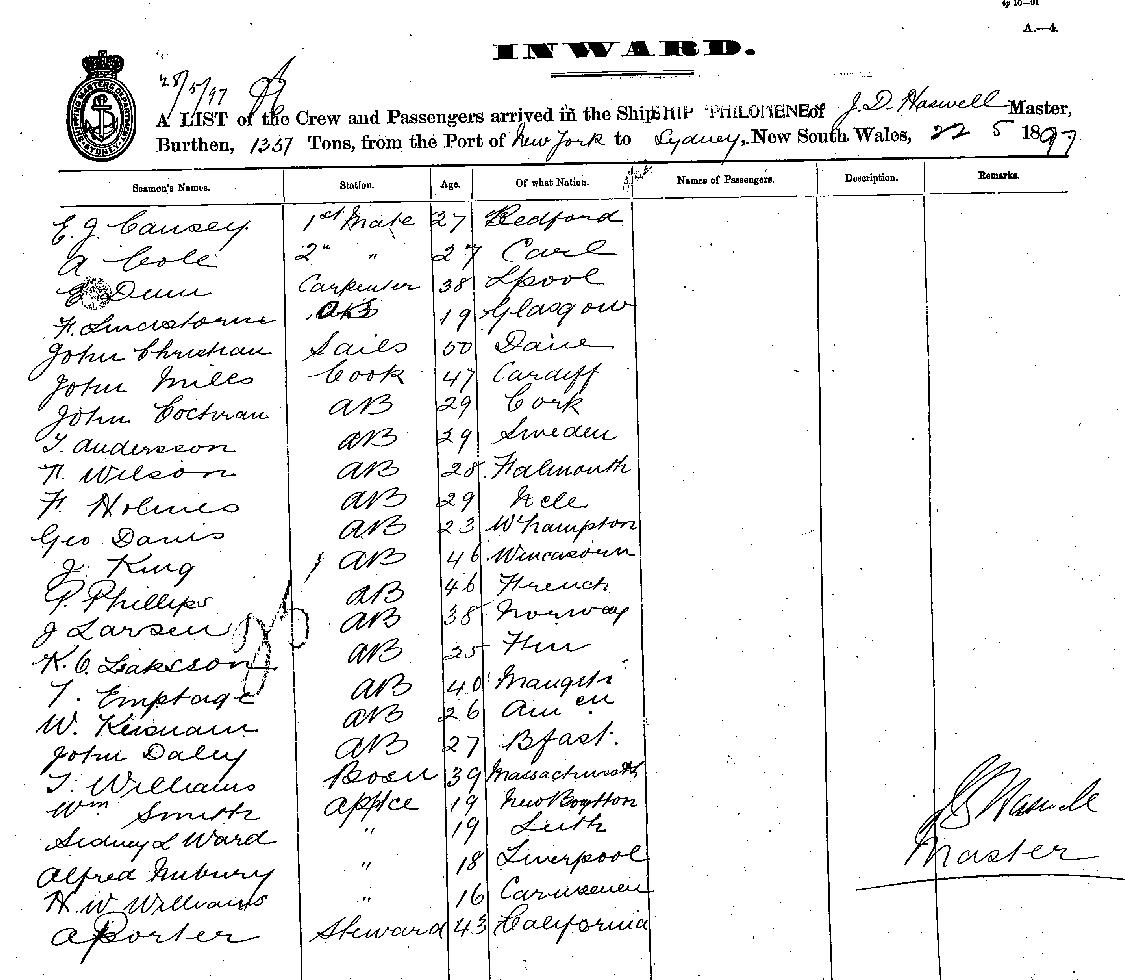 4p 10—01
A.—4.
INWARD.
28/5/97
A LIST of the Crew and Passengers arrived in the Ship SHIP PHILOMENE of J. D. Haswell Master,
Burthen, 1357 Tons, from the Port of New York to Sydney, New South Wales, 22 5 1897
Seamen's Names. Station. Age. Of what Nation. Names of Passengers. Description. Remarks.
E. J. Causey 1st Mate 27 Bedford
A Cole 2" " 27 Carl
Dunn Carpenter 38 Lpool
AB 19 Glasgow
John Christian Sails 50 Dane
John Miles Cook 47 Cardiff
John Cochran AB 29 Cork
T. Andersson AB 29 Sweden
F. Wilson AB 28 Falmouth
F. Holmes AB 29
Geo Davis AB 23 W'hampton
J. King AB 46
P. Phillips AB 46 French
J Larsen AB 38 Norway
K. O. AB 25 Finn
T. Emptage AB 40
W. AB 26
John Daley AB 27 Bfast.
T. Williams Bosn 39
Wm Smith Appce 19 New
Sidney L Ward " 19 Leith
Alfred " 18 Liverpool
H. W. Williams " 16
A Porter Steward 43 California
J D Haswell
Master